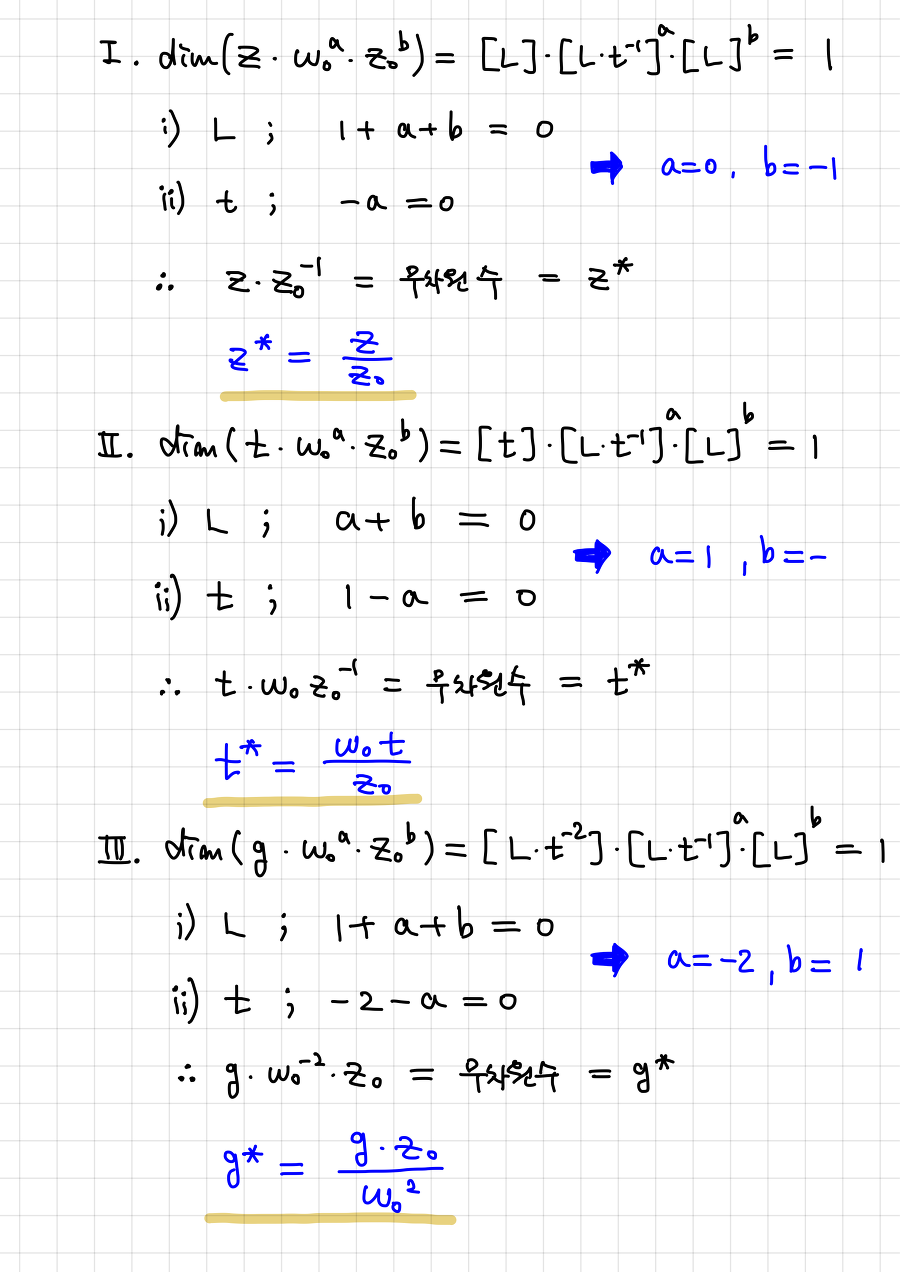 I. dim(z · w₀ᵃ · z₀ᵇ) = [L]·[L·t⁻¹]ᵃ·[L]ᵇ = 1
i) L ; 1 + a + b = 0
➡ a=0, b=-1
ii) t ; -a = 0
∴ z·z₀⁻¹ = 무차원수 = z*
z* = z/z₀
II. dim(t · w₀ᵃ · z₀ᵇ) = [t]·[L·t⁻¹]ᵃ·[L]ᵇ = 1
i) L ; a + b = 0
➡ a=1, b=-
ii) t ; 1 - a = 0
∴ t·w₀ z₀⁻¹ = 무차원수 = t*
t* = w₀t/z₀
III. dim(g · w₀ᵃ · z₀ᵇ) = [L·t⁻²]·[L·t⁻¹]ᵃ·[L]ᵇ = 1
i) L ; 1 + a + b = 0
➡ a=-2, b= 1
ii) t ; -2 - a = 0
∴ g·w₀⁻²·z₀ = 무차원수 = g*
g* = g·z₀/w₀²